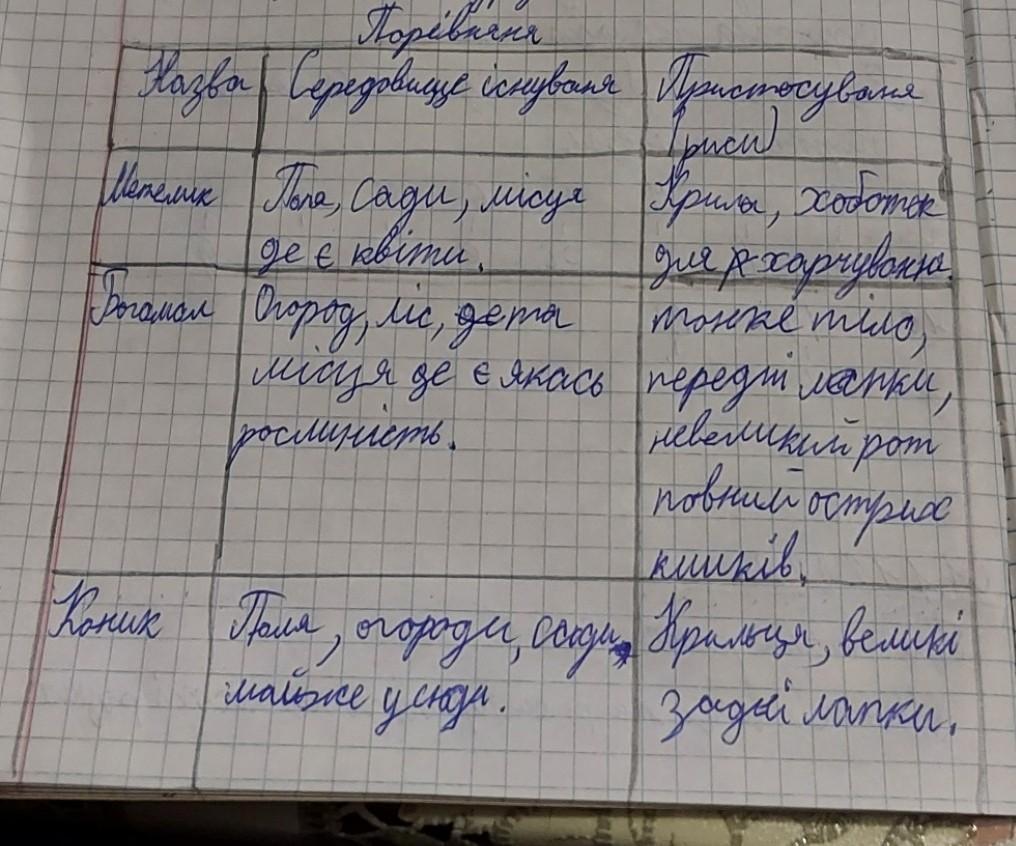 Порівняня
Назва Середовище існуваня Пристосуваня
(риси)
Метелик Поля, сади, місця Крила, хоботок
де є квіти. для харчування.
Богомол Огород, ліс, та тонке тіло,
місця де є якась передні лапки,
рослиність. невеликий рот
повний острих
кликів.
Коник Поля, огороди, сади, Крильця, великі
майже усюди. задні лапки.